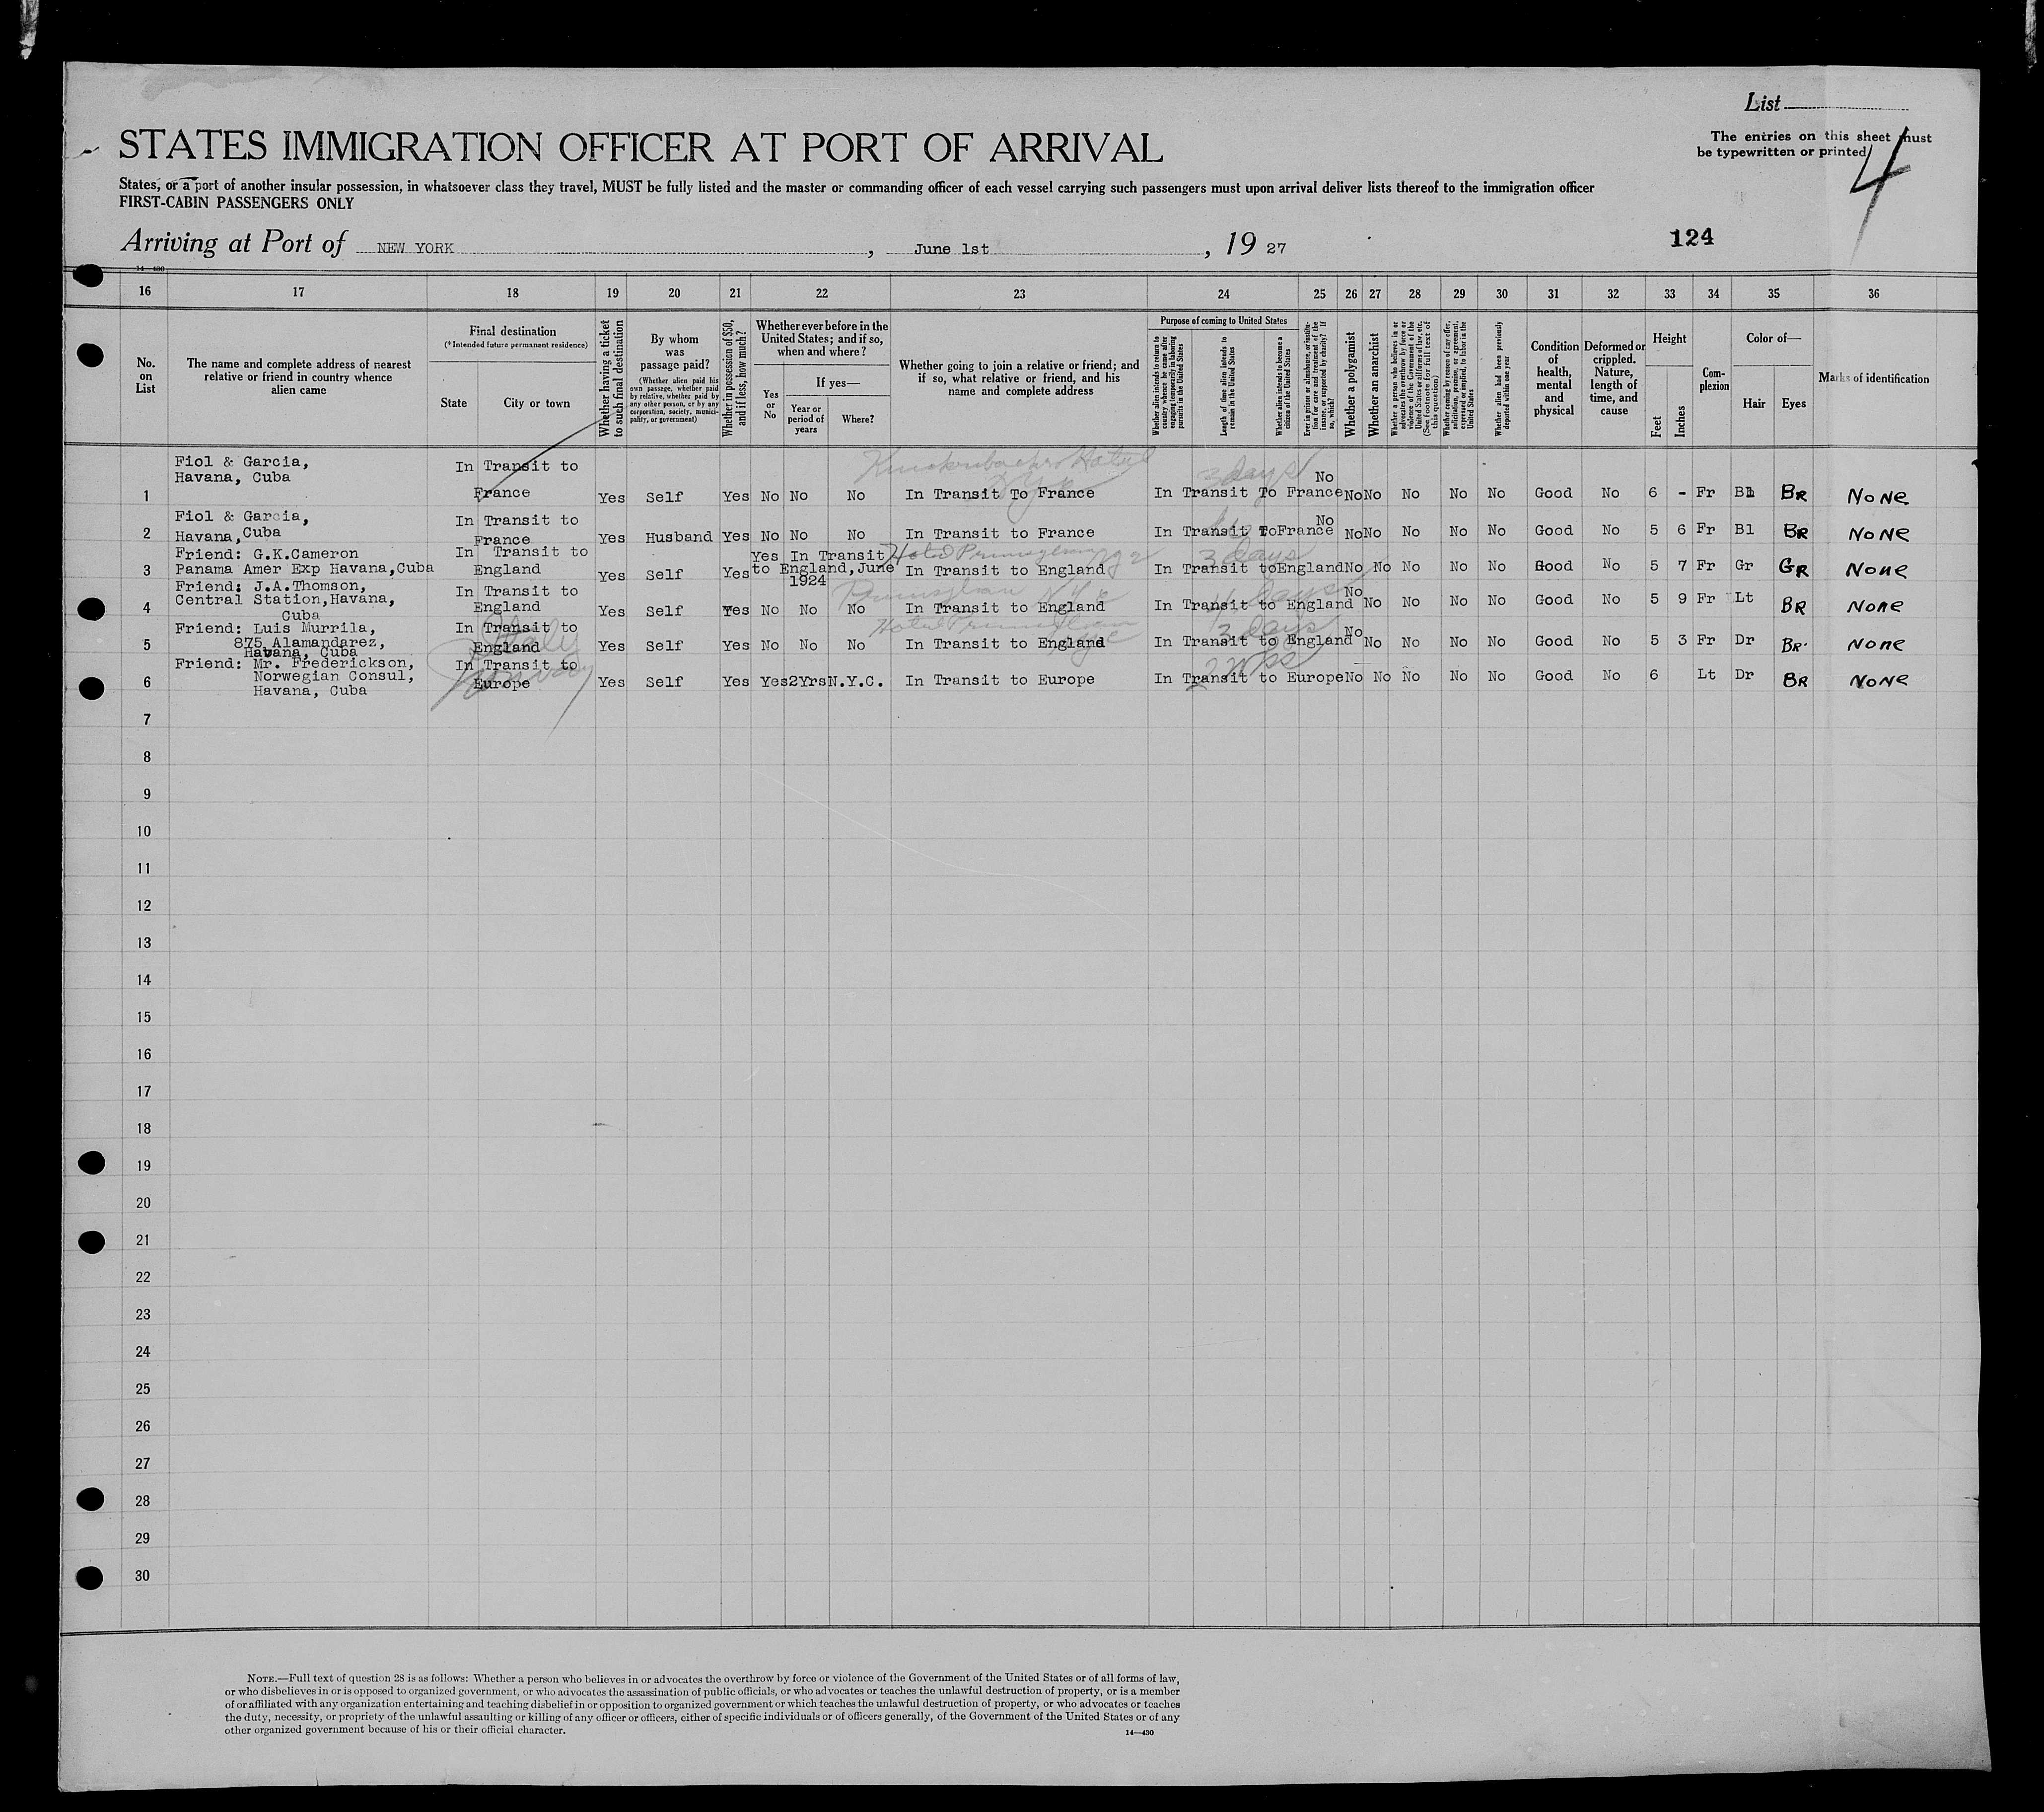 List
The entries on this sheet must
be typewritten or printed
4
STATES IMMIGRATION OFFICER AT PORT OF ARRIVAL
States, or a port of another insular possession, in whatsoever class they travel, MUST be fully listed and the master or commanding officer of each vessel carrying such passengers must upon arrival deliver lists thereof to the immigration officer
FIRST-CABIN PASSENGERS ONLY
Arriving at Port of NEW YORK, June 1st, 19 27
124
14—430
16 17 18 19 20 21 22 23 24 25 26 27 28 29 30 31 32 33 34 35 36
No. on List
The name and complete address of nearest relative or friend in country whence alien came
Final destination
(*Intended future permanent residence)
State
City or town
Whether having a ticket to such final destination
By whom was passage paid?
(Whether alien paid his own passage, whether paid by relative, whether paid by any other person, or by any corporation, society, municipality, or government)
Whether in possession of $50, and if less, how much?
Whether ever before in the United States; and if so, when and where?
Yes or No
If yes—
Year or period of years
Where?
Whether going to join a relative or friend; and if so, what relative or friend, and his name and complete address
Purpose of coming to United States
Whether alien intends to return to country whence he came after engaging temporarily in laboring pursuits in the United States
Length of time alien intends to remain in the United States
Whether alien intends to become a citizen of the United States
Ever in prison or almshouse, or institution for care and treatment of the insane, or supported by charity? If so, which?
Whether a polygamist
Whether an anarchist
Whether a person who believes in or advocates the overthrow by force or violence of the Government of the United States or all forms of law, etc. (See footnote for full text of this question)
Whether coming by reason of any offer, solicitation, promise, or agreement, expressed or implied, to labor in the United States
Whether alien had been previously deported within one year
Condition of health, mental and physical
Deformed or crippled. Nature, length of time, and cause
Height
Feet
Inches
Complexion
Color of—
Hair
Eyes
Marks of identification
Fiol & Garcia,
Havana, Cuba
In Transit to
3 days
No
1 France Yes Self Yes No No No In Transit To France In Transit To France No No No No No Good No 6 - Fr Bl BR NoNe
Fiol & Garcia,
In Transit to
No
2 Havana, Cuba France Yes Husband Yes No No No In Transit to France In Transit To France No No No No No Good No 5 6 Fr Bl BR NoNe
Friend: G.K.Cameron
In Transit to
Yes In Transit
3 days
3 Panama Amer Exp Havana,Cuba England Yes Self Yes to England, June 1924 In Transit to England In Transit to England No No No No No Good No 5 7 Fr Gr GR None
Friend: J.A.Thomson,
In Transit to
4 days
No
4 Central Station, Havana, Cuba England Yes Self Yes No No No In Transit to England In Transit to England No No No No Good No 5 9 Fr Lt BR None
Friend: Luis Murrila,
In Transit to
3 days
No
5 875 Alamandarez, Havana, Cuba England Yes Self Yes No No No In Transit to England In Transit to England No No No No Good No 5 3 Fr Dr BR. None
Italy
Friend: Mr. Frederickson,
In Transit to
6 Norwegian Consul, Havana, Cuba Europe Yes Self Yes Yes 2Yrs N.Y.C. In Transit to Europe In Transit to Europe No No No No No Good No 6 Lt Dr BR NoNe
Norway
7
8
9
10
11
12
13
14
15
16
17
18
19
20
21
22
23
24
25
26
27
28
29
30
NOTE.—Full text of question 28 is as follows: Whether a person who believes in or advocates the overthrow by force or violence of the Government of the United States or of all forms of law,
or who disbelieves in or is opposed to organized government, or who advocates the assassination of public officials, or who advocates or teaches the unlawful destruction of property, or is a member
of or affiliated with any organization entertaining and teaching disbelief in or opposition to organized government or which teaches the unlawful destruction of property, or who advocates or teaches
the duty, necessity, or propriety of the unlawful assaulting or killing of any officer or officers, either of specific individuals or of officers generally, of the Government of the United States or of any
other organized government because of his or their official character.
14—430